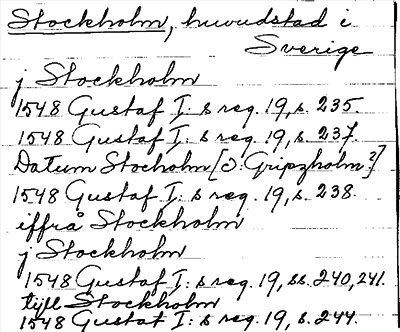 Stockholm, huvudstad i
Sverige
j Stockholm
1548 Gustaf I:s reg. 19, s. 235.
1548 Gustaf I:s reg. 19, s. 237.
Datum Stocholm [ɔ: Gripzholm?]
1548 Gustaf I:s reg. 19, s. 238.
iffrå Stockholm
j Stockholm
1548 Gustaf I:s reg. 19, ss. 240, 241.
tijll Stockholm
1548 Gustaf I:s reg. 19, s. 244.